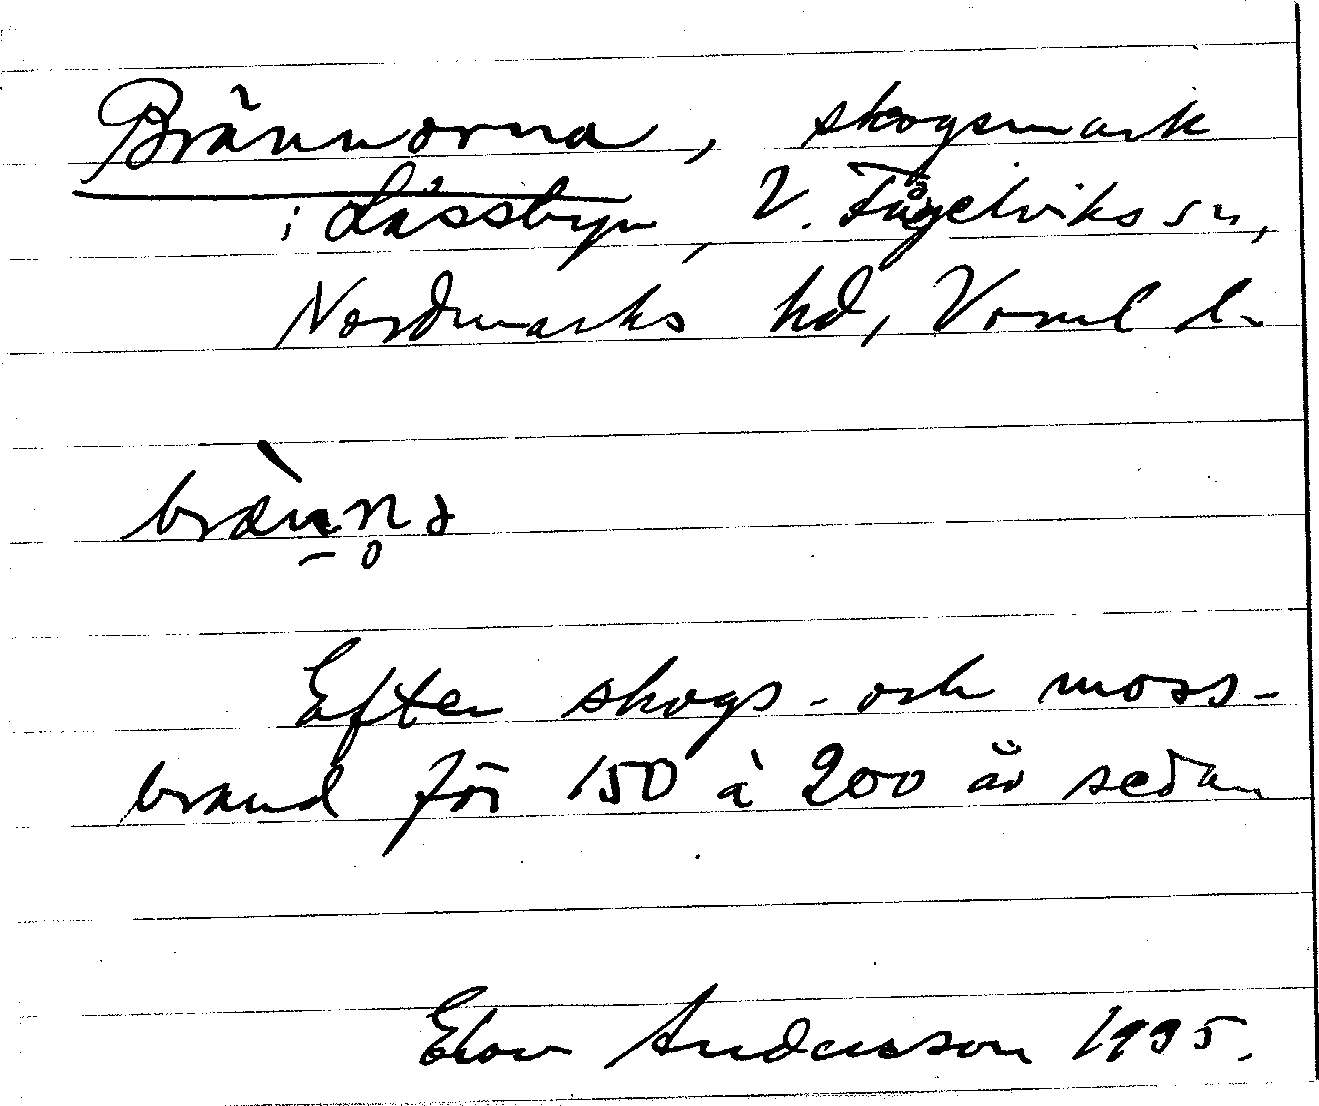 Brännorna, skogsmark
i Lässbyn, V. Fågelviks sn,
Nordmarks hd, Vrml l.
Efter skogs- och moss-
brand för 150 à 200 år sedan
Elov Andersson 1935.